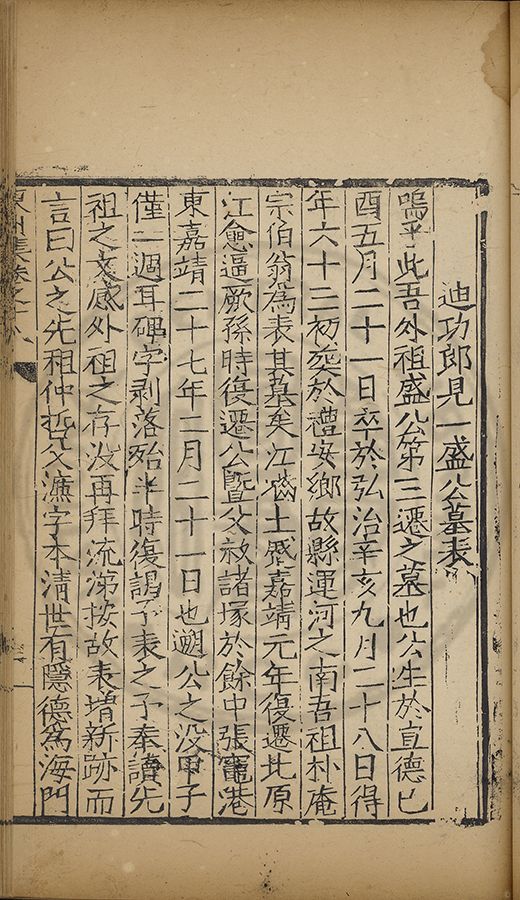 迪功郎見一盛公墓表
嗚乎此吾外祖盛公第三遷之墓也公生於宣德己
酉五月二十一日卒於弘治辛亥九月二十八日得
年六十三初葬於禮安鄉故縣運河之南吾祖朴庵
宗伯翁為表其墓矣江齧土蹙嘉靖元年復遷北原
江愈逼厥孫時復遷公暨父祔諸塚於餘中張竈港
東嘉靖二十七年二月二十一日也遡公之没甲子
僅一週耳碑字剥落殆半時復謁予表之予奉讀先
祖之文感外祖之存没再拜流涕按故表増新跡而
言曰公之先祖仲哲父濂字本清世有隱德為海門
東州集卷之十八